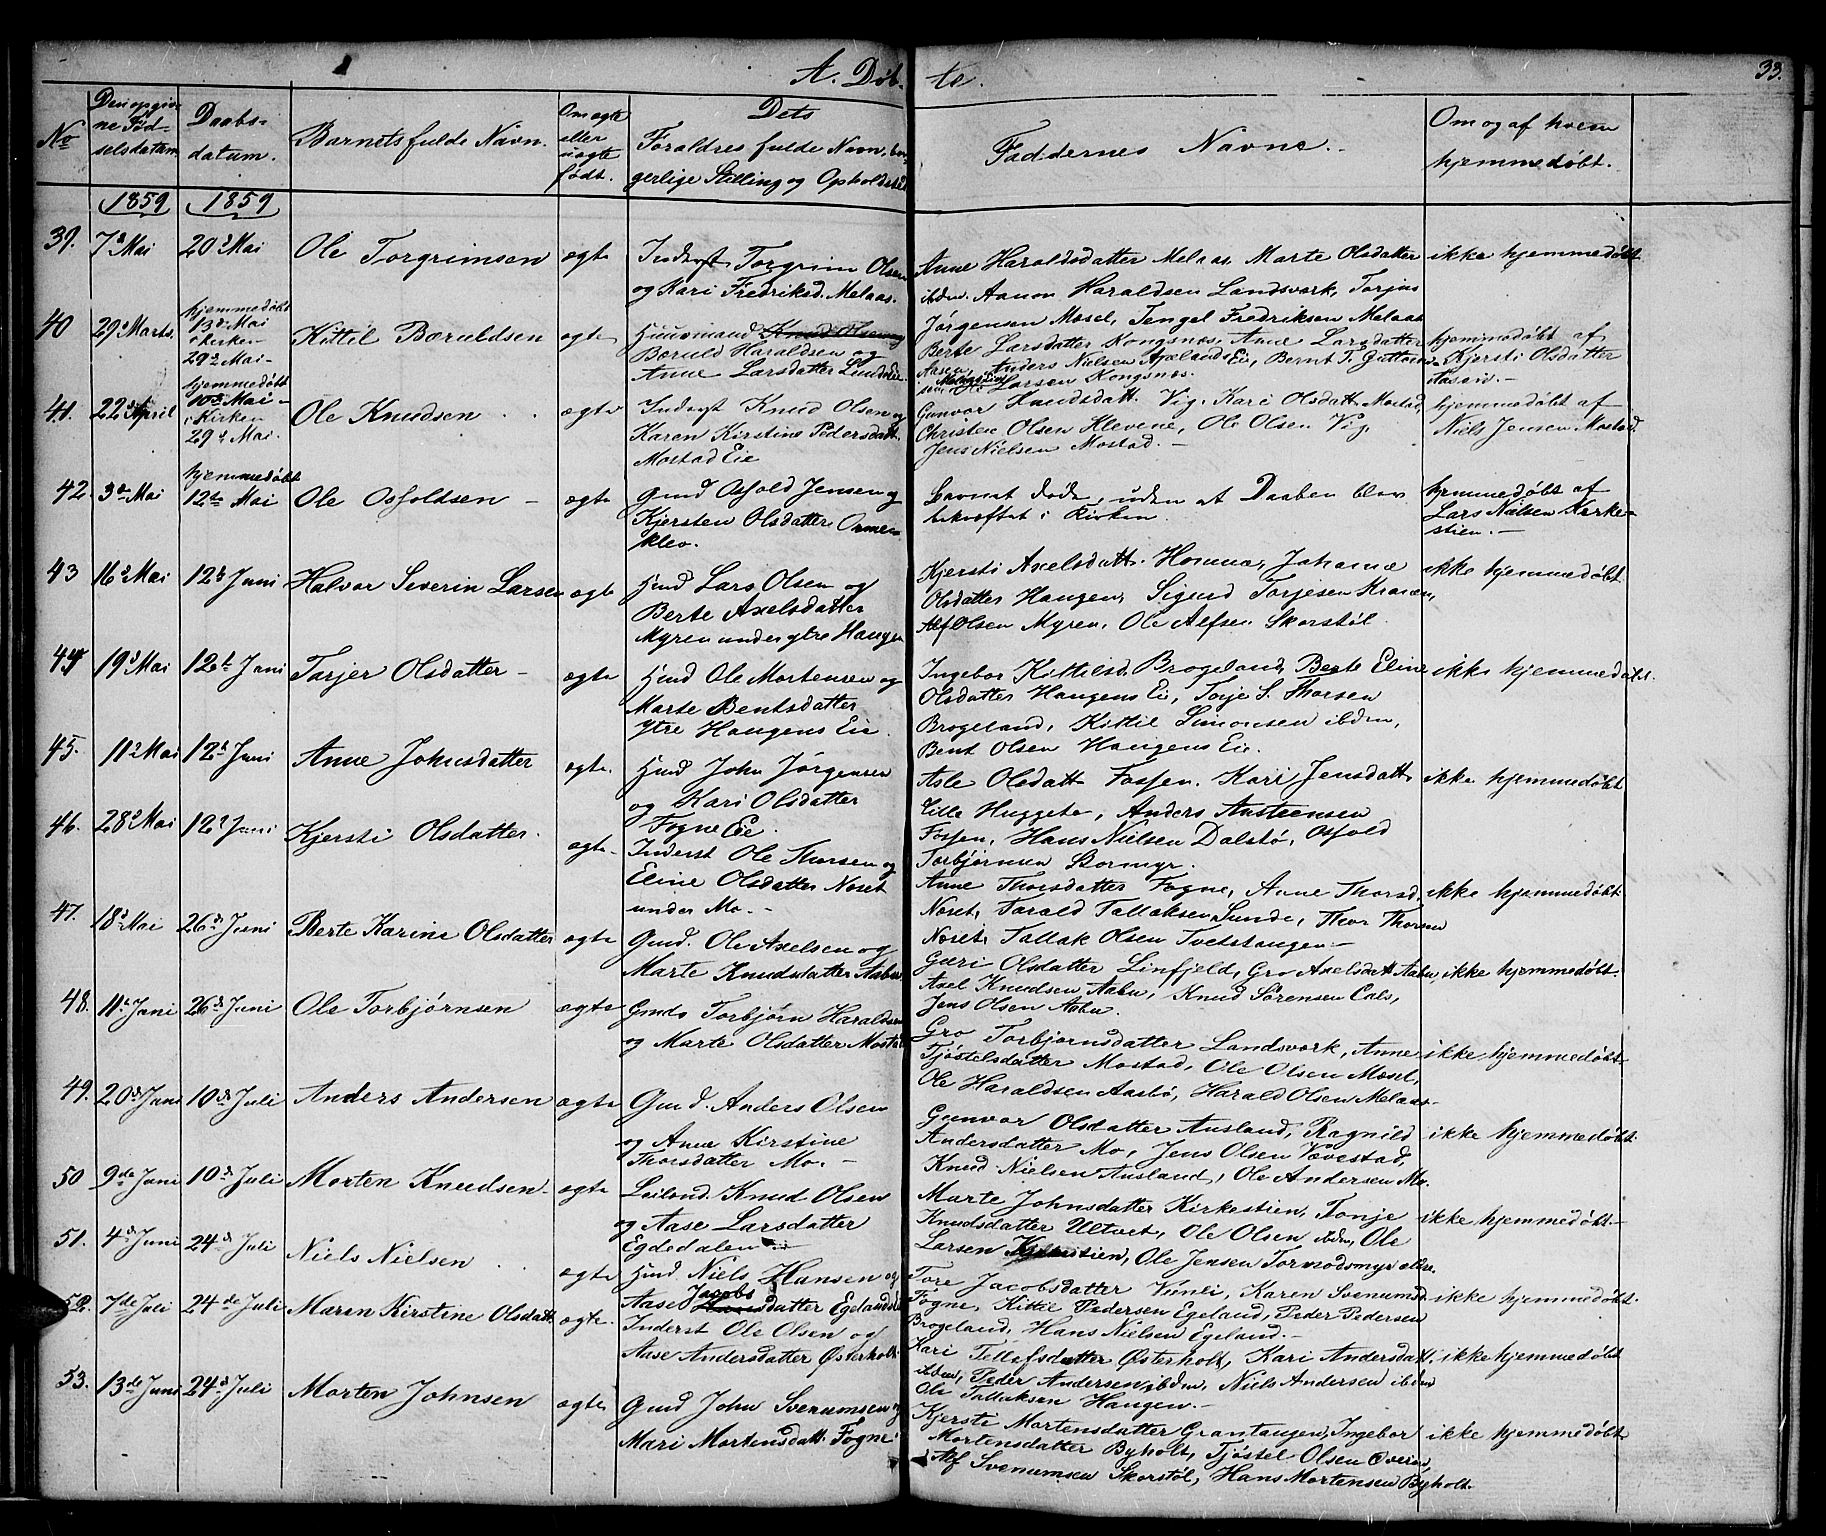 A. Døb- te. 33.
No
Den opgiv-
ne Fød-
selsdatum
Daabs-
datum.
Barnets fulde Navn.
Om ægte
eller
uægte
født.
Dets
Forældres fulde Navn, bor-
gerlige Stilling og Opholdssted
Faddernes Navne.
Om og af hvem
hjemmedøbt.
1859 1859
39. 7de Mai 20de Mai Ole Torgrimsen ægte
Inderst Torgrim Olsen
og Kari Fredriksd. Melaas.
Anne Haraldsdatter Melaas, Marte Olsdatter
ibdm. Aanon Haraldsen Landsverk, Torjus
Jørgensen Mosel, Tengel Fredriksen Melaas
ikke hjemmedøbt
40 29de Marts.
hjemmedøbt
13de Mai
i Kirken
29de Mai-
Kittil Bæruldsen ægte
Huusmand Knud Olsen og
Bæruld Haraldsen og
Anne Larsdatter Lunds Eie
Berte Larsdatter Kongsnæs, Anne Larsdatter
Aasen, Anders Nielsen Hjelands Eie, Bernt T. Guttorm-
sen Larsen Kongsnæs.
hjemmedøbt af
Kjersti Olsdatter
Aasen.-
41. 22de April
hjemmedøbt
10de Mai-
i Kirken
29de Mai.
Ole Knudsen ægte
Inderst Knud Olsen og
Karen Kirstine Pedersdatt.
Mostad Eie
Gunvor Knudsdatt. Vig, Kari Olsdatt. Mostad,
Christen Olsen Klevene, Ole Olsen Vig,
Jens Nielsen Mostad.-
hjemmedøbt af
Niels Jensen Mostad.
42. 3de Mai
hjemmedøbt
12te Mai
Ole Osfoldsen - ægte
Gmd Osfold Jensen og
Kjersten Olsdatter Ormen
klev.
Barnet døde, uden at Daaben blev
bekræftet i Kirken.
hjemmedøbt af
Lars Nielsen Kirke-
stien.-
43 16de Mai 12te Juni Halvor Severin Larsen ægte
Hmd Lars Olsen og
Berte Axelsdatter
Myren under ytre Haugen
Kjersti Axelsdatt. Homme, Johanne
Olsdatter Haugen, Sigurd Torjesen
Alf Olsen Myren, Ole Alfsen Skorstøl.
ikke hjemmedøbt
44 19de Mai 12te Juni Torjer Olsdatter - ægte
Hmd Ole Mortensen og
Marte Bentsdatter
Ytre Haugens Eie.
Ingebor Kittilsd. Brogeland, Berte Eline
Olsdatter Haugens Eie, Torje S. Thorsen
Brogeland, Kittil Simonsen ibdm,
Bent Olsen Haugens Eie.
ikke hjemmedøbt.
45. 11te Mai 12te Juni Anne Johnsdatter ægte.
Hmd John Jørgensen
og Kari Olsdatter
Fogne Eie.
Asle Olsdatt. Fosfen. Kari Jensdatt.
Lille Huggeto, Anders Austeensen
Fosfen, Hans Nielsen Dalstø, Osfold
Torbjørnsen Stormyr.
ikke hjemmedøbt
46. 28de Mai 12te Juni Kjersti Olsdatter. ægte
Inderst Ole Thorsen og
Eline Olsdatter Noset
under Mo.-
Anne Thorsdatter Fogne, Anne Thorsd.
Noset, Tarald Tallaksen Sunde, Thor Thorsen
Noset, Tallak Olsen Tvetstaugen-
ikke hjemmedøbt
47. 18de Mai 26de Juni Berte Karine Olsdatter ægte
Gmd. Ole Axelsen og
Marte Knudsdatter Aabu.
Guri Olsdatter Linfjeld, Gro Axelsdatt. Aabu,
Axel Knudsen Aabu, Knud Sørensen Cals,
Jens Olsen Aabu.
ikke hjemmedøbt.
48. 11te Juni 26de Juni Ole Torbjørnsen ægte
Gmds Torbjørn Haraldsen
og Marte Olsdatter Mostad
Gro Torbjørnsdatter Landsverk, Anne
Tjøstelsdatter Mostad, Ole Olsen Mosel,
Ole Haraldsen Aasbø, Harald Olsen Melaas.
ikke hjemmedøbt
49. 20de Juni 10de Juli Anders Andersen ægte
Gmd. Anders Olsen
og Anne Kirstine
Thorsdatter Mo.-
Gunvor Olsdatter Ausland, Ragnild
Andersdatter Mo, Jens Olsen Vævestad,
Knud Nielsen Ausland, Ole Andersen Mo.
ikke hjemmedøbt.
50 9de Juni 10de Juli Morten Knudsen ægte
Leilend. Knud Olsen
og Aase Larsdatter
Egdedalen
Marte Johnsdatter Kirkestien, Tonje
Knudsdatter Ultvet, Ole Olsen ibdm, Ole
Larsen Kirkestien, Ole Jensen Tormodsmyr
ikke hjemmedøbt-
51. 4de Juni 24de Juli Niels Nielsen ægte
Hmd. Niels Hansen og
Aase Jacobsdatter Egelands
Tore Jacobsdatter Vimli, Karen Svenumsd.
Fogne, Kittil Pedersen Egeland, Peder Pedersen
Brogeland, Hans Nielsen Egeland.-
ikke hjemmedøbt.
52. 7de Juli 24de Juli Maren Kirstine Olsdatt. ægte.
Inderst Ole Olsen og
Aase Andersdatter Østerholt
Kari Tellefsdatter Østerholt, Kari Andersdatt.
ibdm, Peder Andersen ibdm, Niels Andersen ibdm
Ole Tallaksen Haugen.-
ikke hjemmedøbt
53. 13de Juni 24de Juli Morten Johnsen ægte
Gmd John Svenumsen og
Mari Mortensdatt. Fogne
Kjersti Mortensdatter Grantangen, Ingebor
Mortensdatter Byholt, Tjøstel Olsen
Alf Svenumsen Skorstøl, Hans Mortensen Byholt.
ikke hjemmedøbt